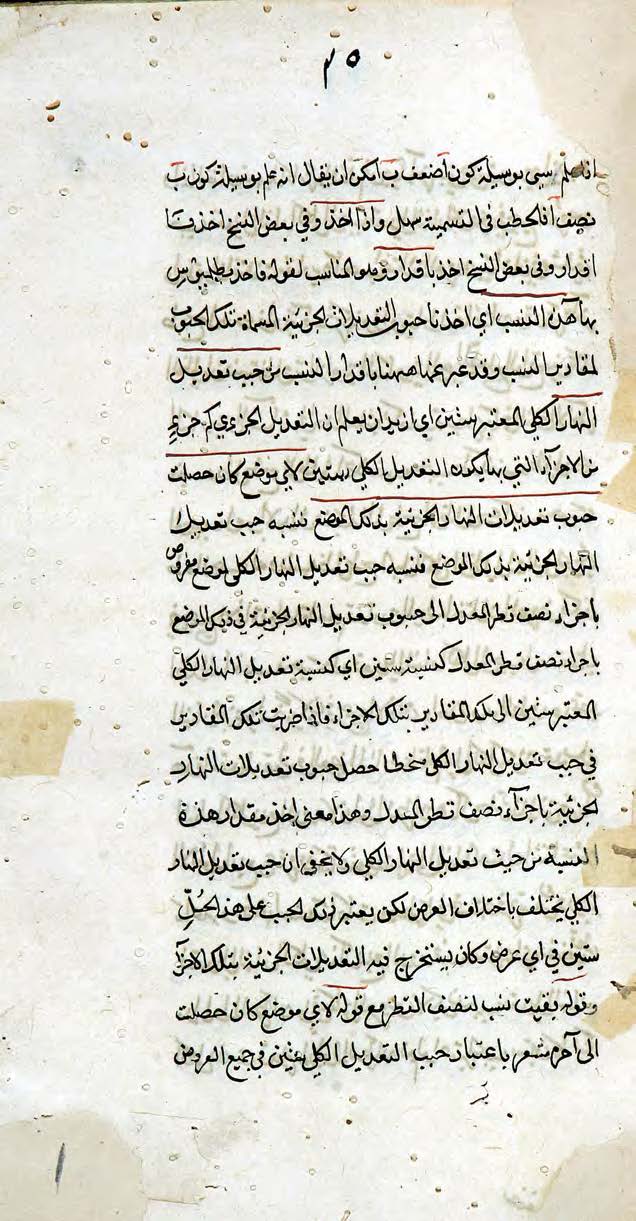 ٢٥
اذا علم شيئ بوسيلة كون آ ضعف ب امكن ان يقال انه علم بوسيلة كون ب
نصف آ فالخطب فى التسمية سهل واذا اخذ وفي بعض النسخ اخذنا
اقدار وفى بعض النسخ اخذ باقدار وهو المناسب لقوله فاخذ بطلميوس
بهاهذه النسب اي اخذنا جيوب التعديلات الجزئية المسماة تلك الجيوب
لمقادير النسب وقد عبر عنها ههنا باقدار النسب من جيب تعديل
النهار الكلي المعتبر ستين اي ازيد ان يعلم ان التعديل الجزئي كم جزءٍ
من الاجزاء التي بها يكون التعديل الكلي ستين لاي موضع كان حصلت
جيوب تعديلات النهار الجزئية بذلك الموضع فنسبة جيب تعديل
النهار الجزئية بذلك الموضع فنسبة جيب تعديل النهار الكلى لموضع مفروض
باجزاء نصف قطر المعدل الى جيوب تعديل النهار الجزئية في ذلك الموضع
باجزاء نصف قطر المعدل كنسبة ستين اي كنسبة تعديل النهار الكلي
المعتبر ستين الى تلك المقادير بتلك الاجزاء فاذا ضربت تلك المقادير
في جيب تعديل النهار الكلي منحطا حصل جيوب تعديلات النهار
الجزئية باجزآء نصف قطر المعدل وهذا معنى اخذ مقدار هذة
النسبة من حيث تعديل النهار الكلي ولا يخفى ان جيب تعديل النهار
الكلي يختلف باختلاف العرض لكن يعتبر ذلك الجيب على هذ الحُلِّ
ستين في اي عرض وكان يستخرج فيه التعديلات الجزئية بتلك الاجزآ
وقوله بقيت نسب لنصف القطر مع قوله لاي موضع كان حصلت
الى آخره مشعر باعتبار جيب التعديل الكلي ستين في جميع العروض